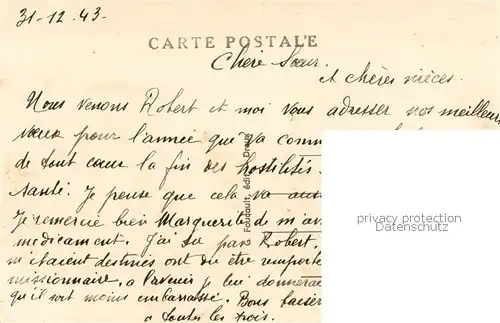 31-12-43.
CARTE POSTALE
Chère Sœur.
et chères nièces.
Nous venons Robert et moi vous adresser vos meilleurs
vœux pour l'année qui va comm
de tout cœur la fin des hostilités.
santé. Je pense que cela va aus
Je remercie bien Marguerite d m'av
médicament. J'ai su par Robert.
m'étaient destinés ont du être remporté
missionnaire, a l'avenir je lui donnerai
qu'il soit moins embarrassé. Bons baisers
a toutes les trois.
Foucault, édit. Dreux
privacy protection
Datenschutz